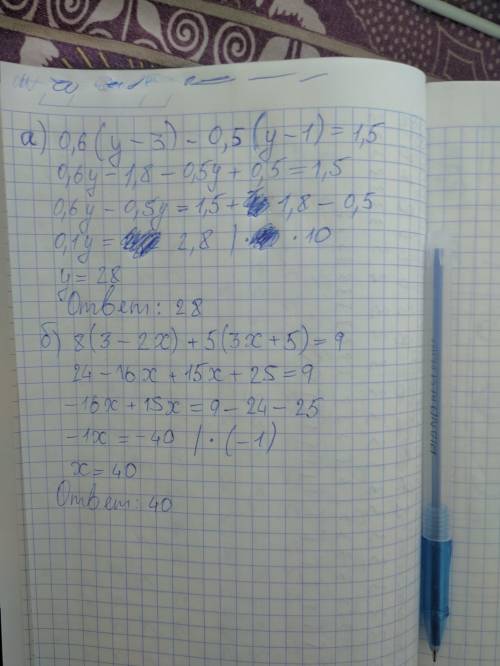 а) 0,6(y-3)-0,5(y-1)=1,5
0,6y-1,8-0,5y+0,5=1,5
0,6y-0,5y=1,5+1,8-0,5
0,1y= 2,8 | · 10
y=28
Ответ: 28
б) 8(3-2x)+5(3x+5)=9
24-16x+15x+25=9
-16x+15x=9-24-25
-1x=-40 | · (-1)
x=40
Ответ: 40